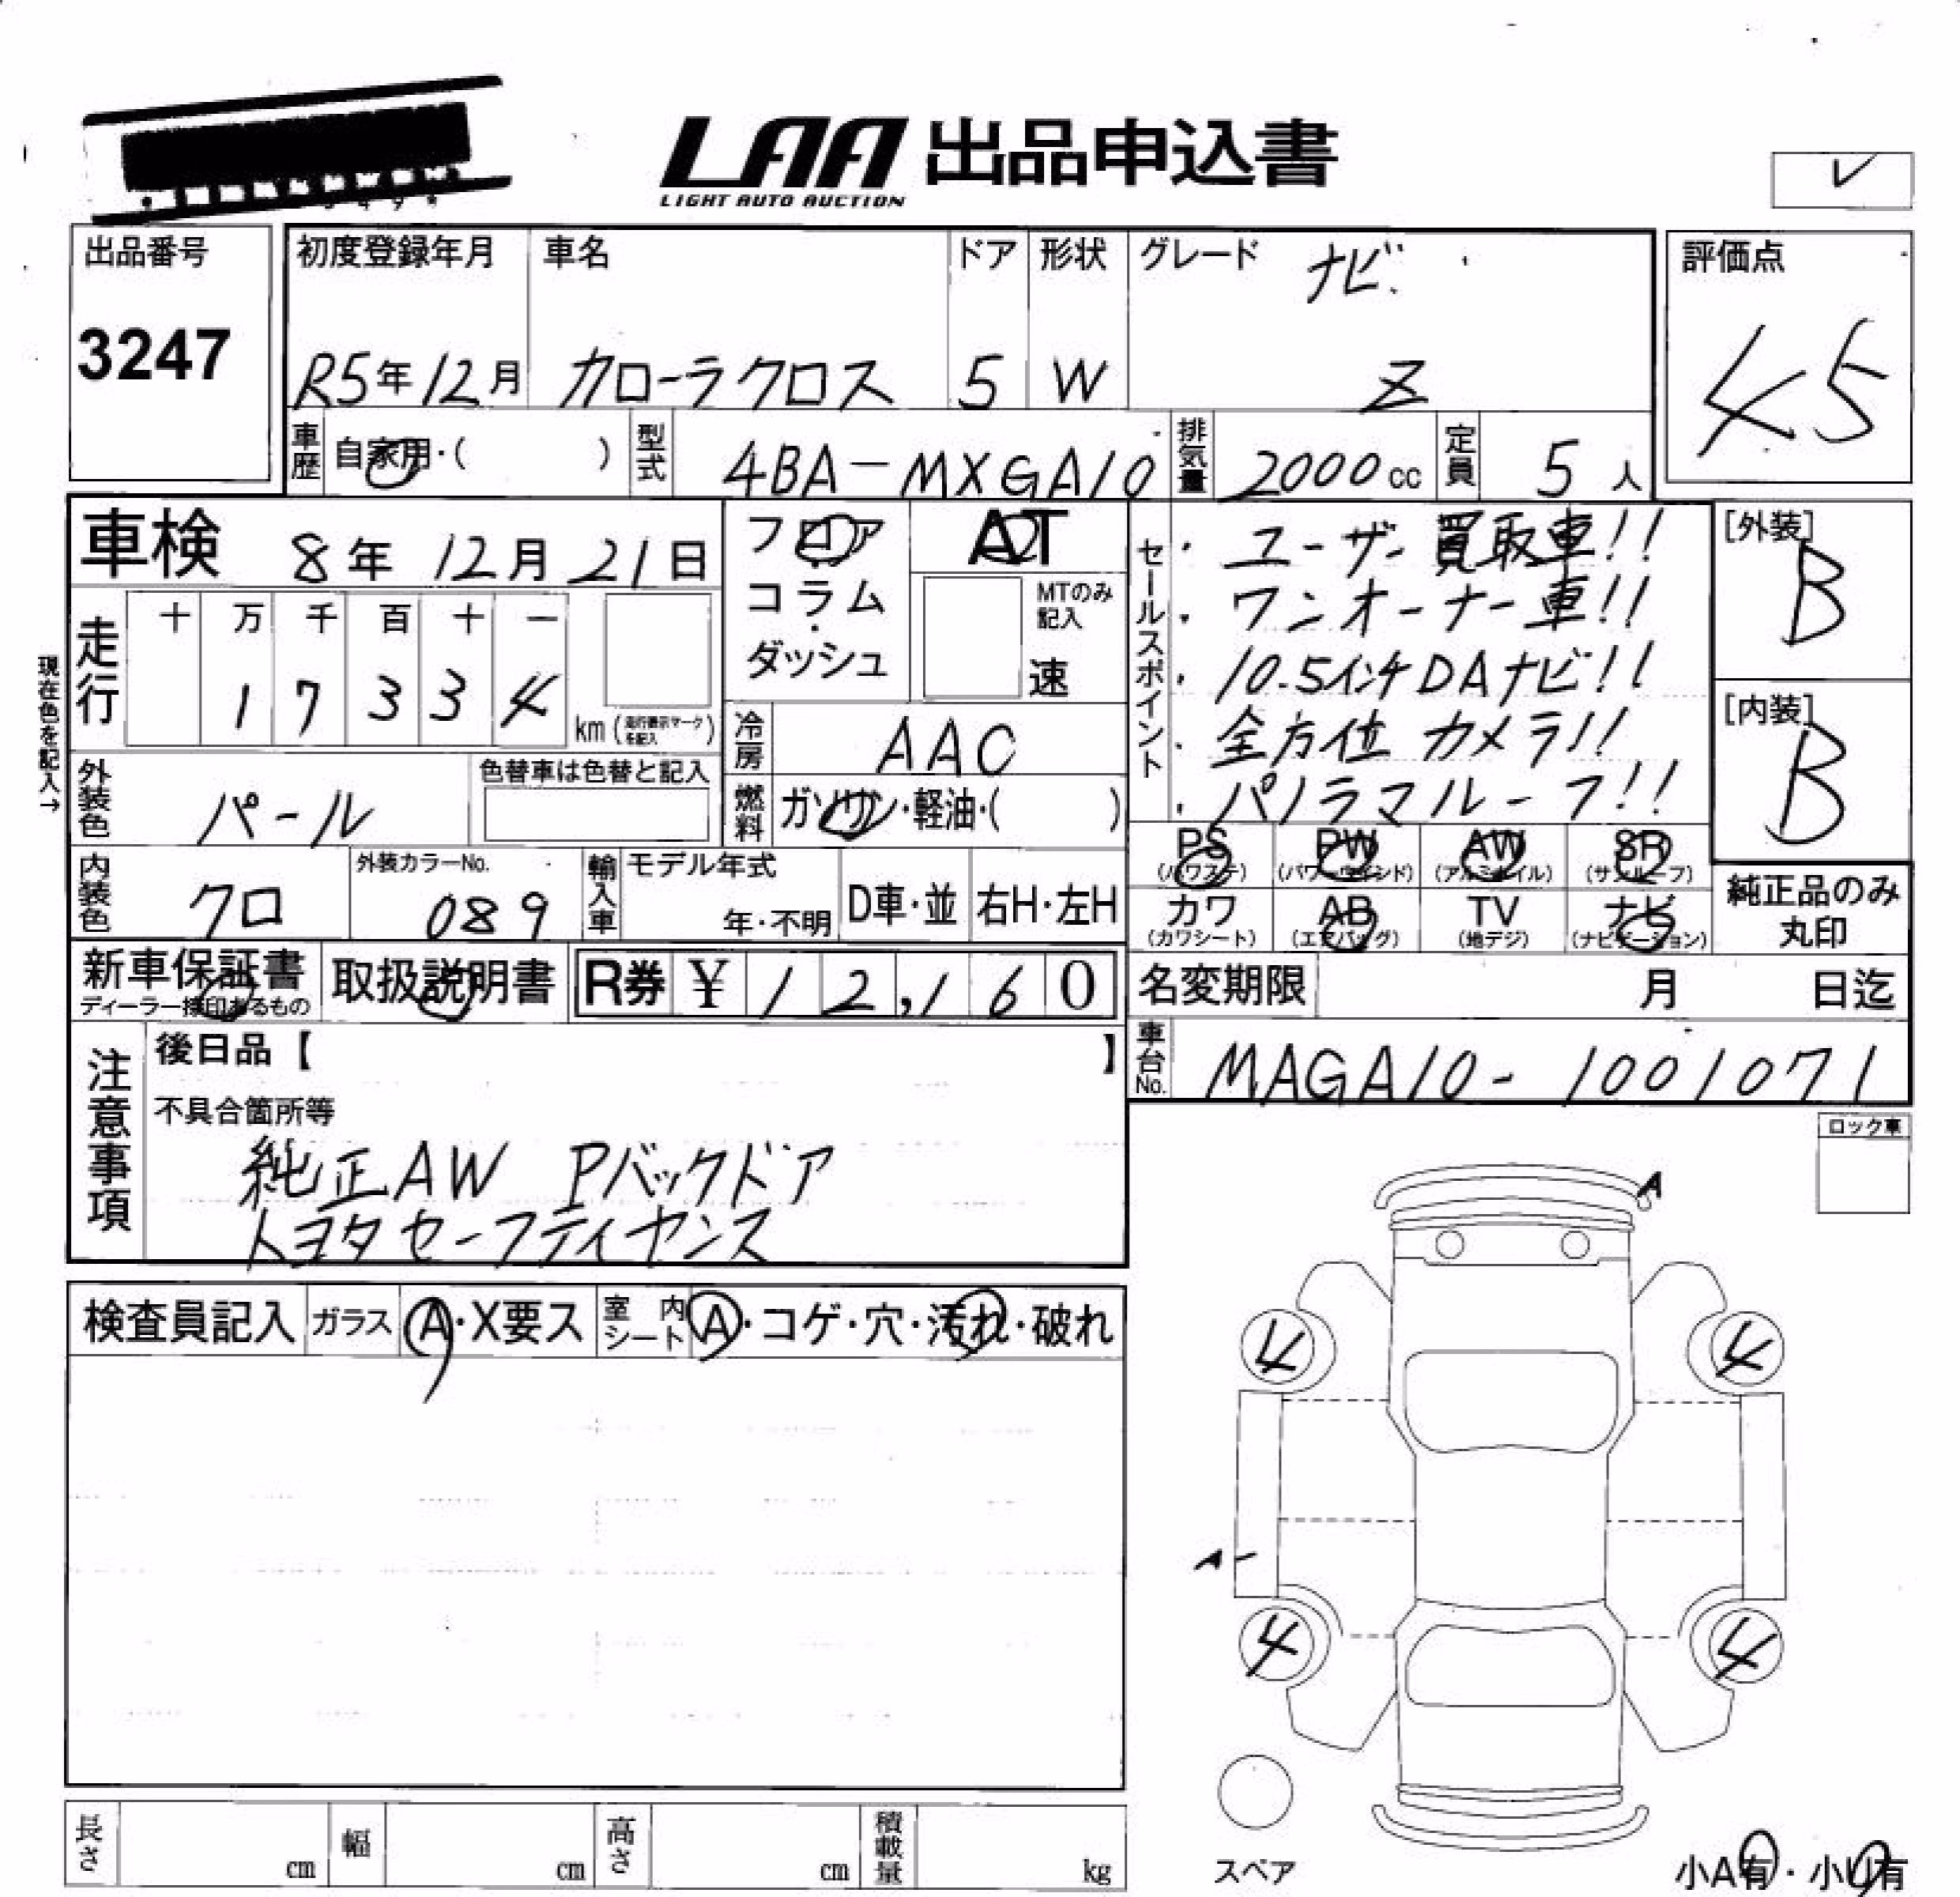 LAA 出品申込書
LIGHT AUTO AUCTION
出品番号
3247
初度登録年月
R5年12月
車名
カローラクロス
ドア
5
形状
W
グレード
ナビ
Z
評価点
4.5
車歴
自家用・( )
型式
4BA-MXGA10
排気量
2000cc
定員
5人
車検 8年 12月 21日
走行
十 万 千 百 十 一
1 7 3 3 4
km (走行表示マークを記入)
現在色を記入→
外装色
パール
色替車は色替と記入
内装色
クロ
外装カラーNo.
089
フロア
コラム
ダッシュ
AT
MTのみ記入
速
冷房
AAC
燃料
ガソリン・軽油・( )
輸入車
モデル年式
年・不明
D車・並
右H・左H
セールスポイント
・ユーザー買取車!!
・ワンオーナー車!!
・10.5インチDAナビ!!
・全方位カメラ!!
・パノラマルーフ!!
[外装]
B
[内装]
B
PS
(パワステ)
PW
(パワーウインド)
AW
(アルミホイル)
SR
(サンルーフ)
カワ
(カワシート)
AB
(エアバッグ)
TV
(地デジ)
ナビ
(ナビゲーション)
純正品のみ
丸印
新車保証書
ディーラー捺印あるもの
取扱説明書
R券 ¥12,160
名変期限 月 日迄
車台No.
MAGA10-1001071
注意事項
後日品【 】
不具合箇所等
純正AW Pバックドア
トヨタセーフティセンス
ロック車
検査員記入
ガラス
A・X要ス
室内シート
A・コゲ・穴・汚れ・破れ
A
4
4
A-
4
4
スペア
小A有・小U有
長さ cm
幅 cm
高さ cm
積載量 kg